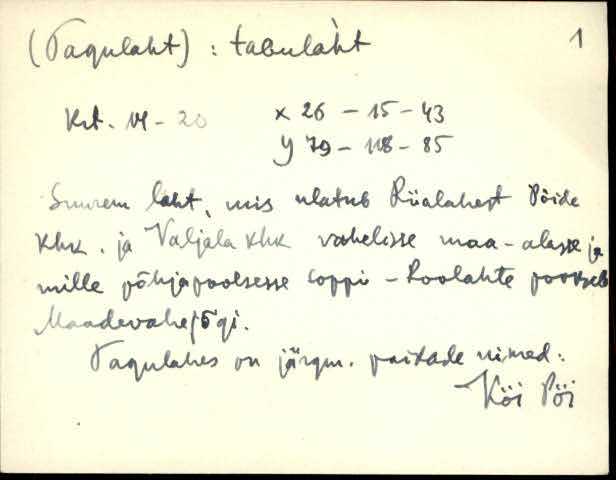 (Tagulaht) : tabulàht 1
Krt. 14 - 20 x 26 - 15 - 43
y 79 - 118 - 85
Suurem laht, mis ulatub Riialahest Pöide
khk. ja Valjala khk vahelisse maa-alasse ja
mille põhjapoolsesse soppi - Roolahte
Maadevahejõgi.
Tagulahes on järgm. paikade nimed:
Köi Pöi